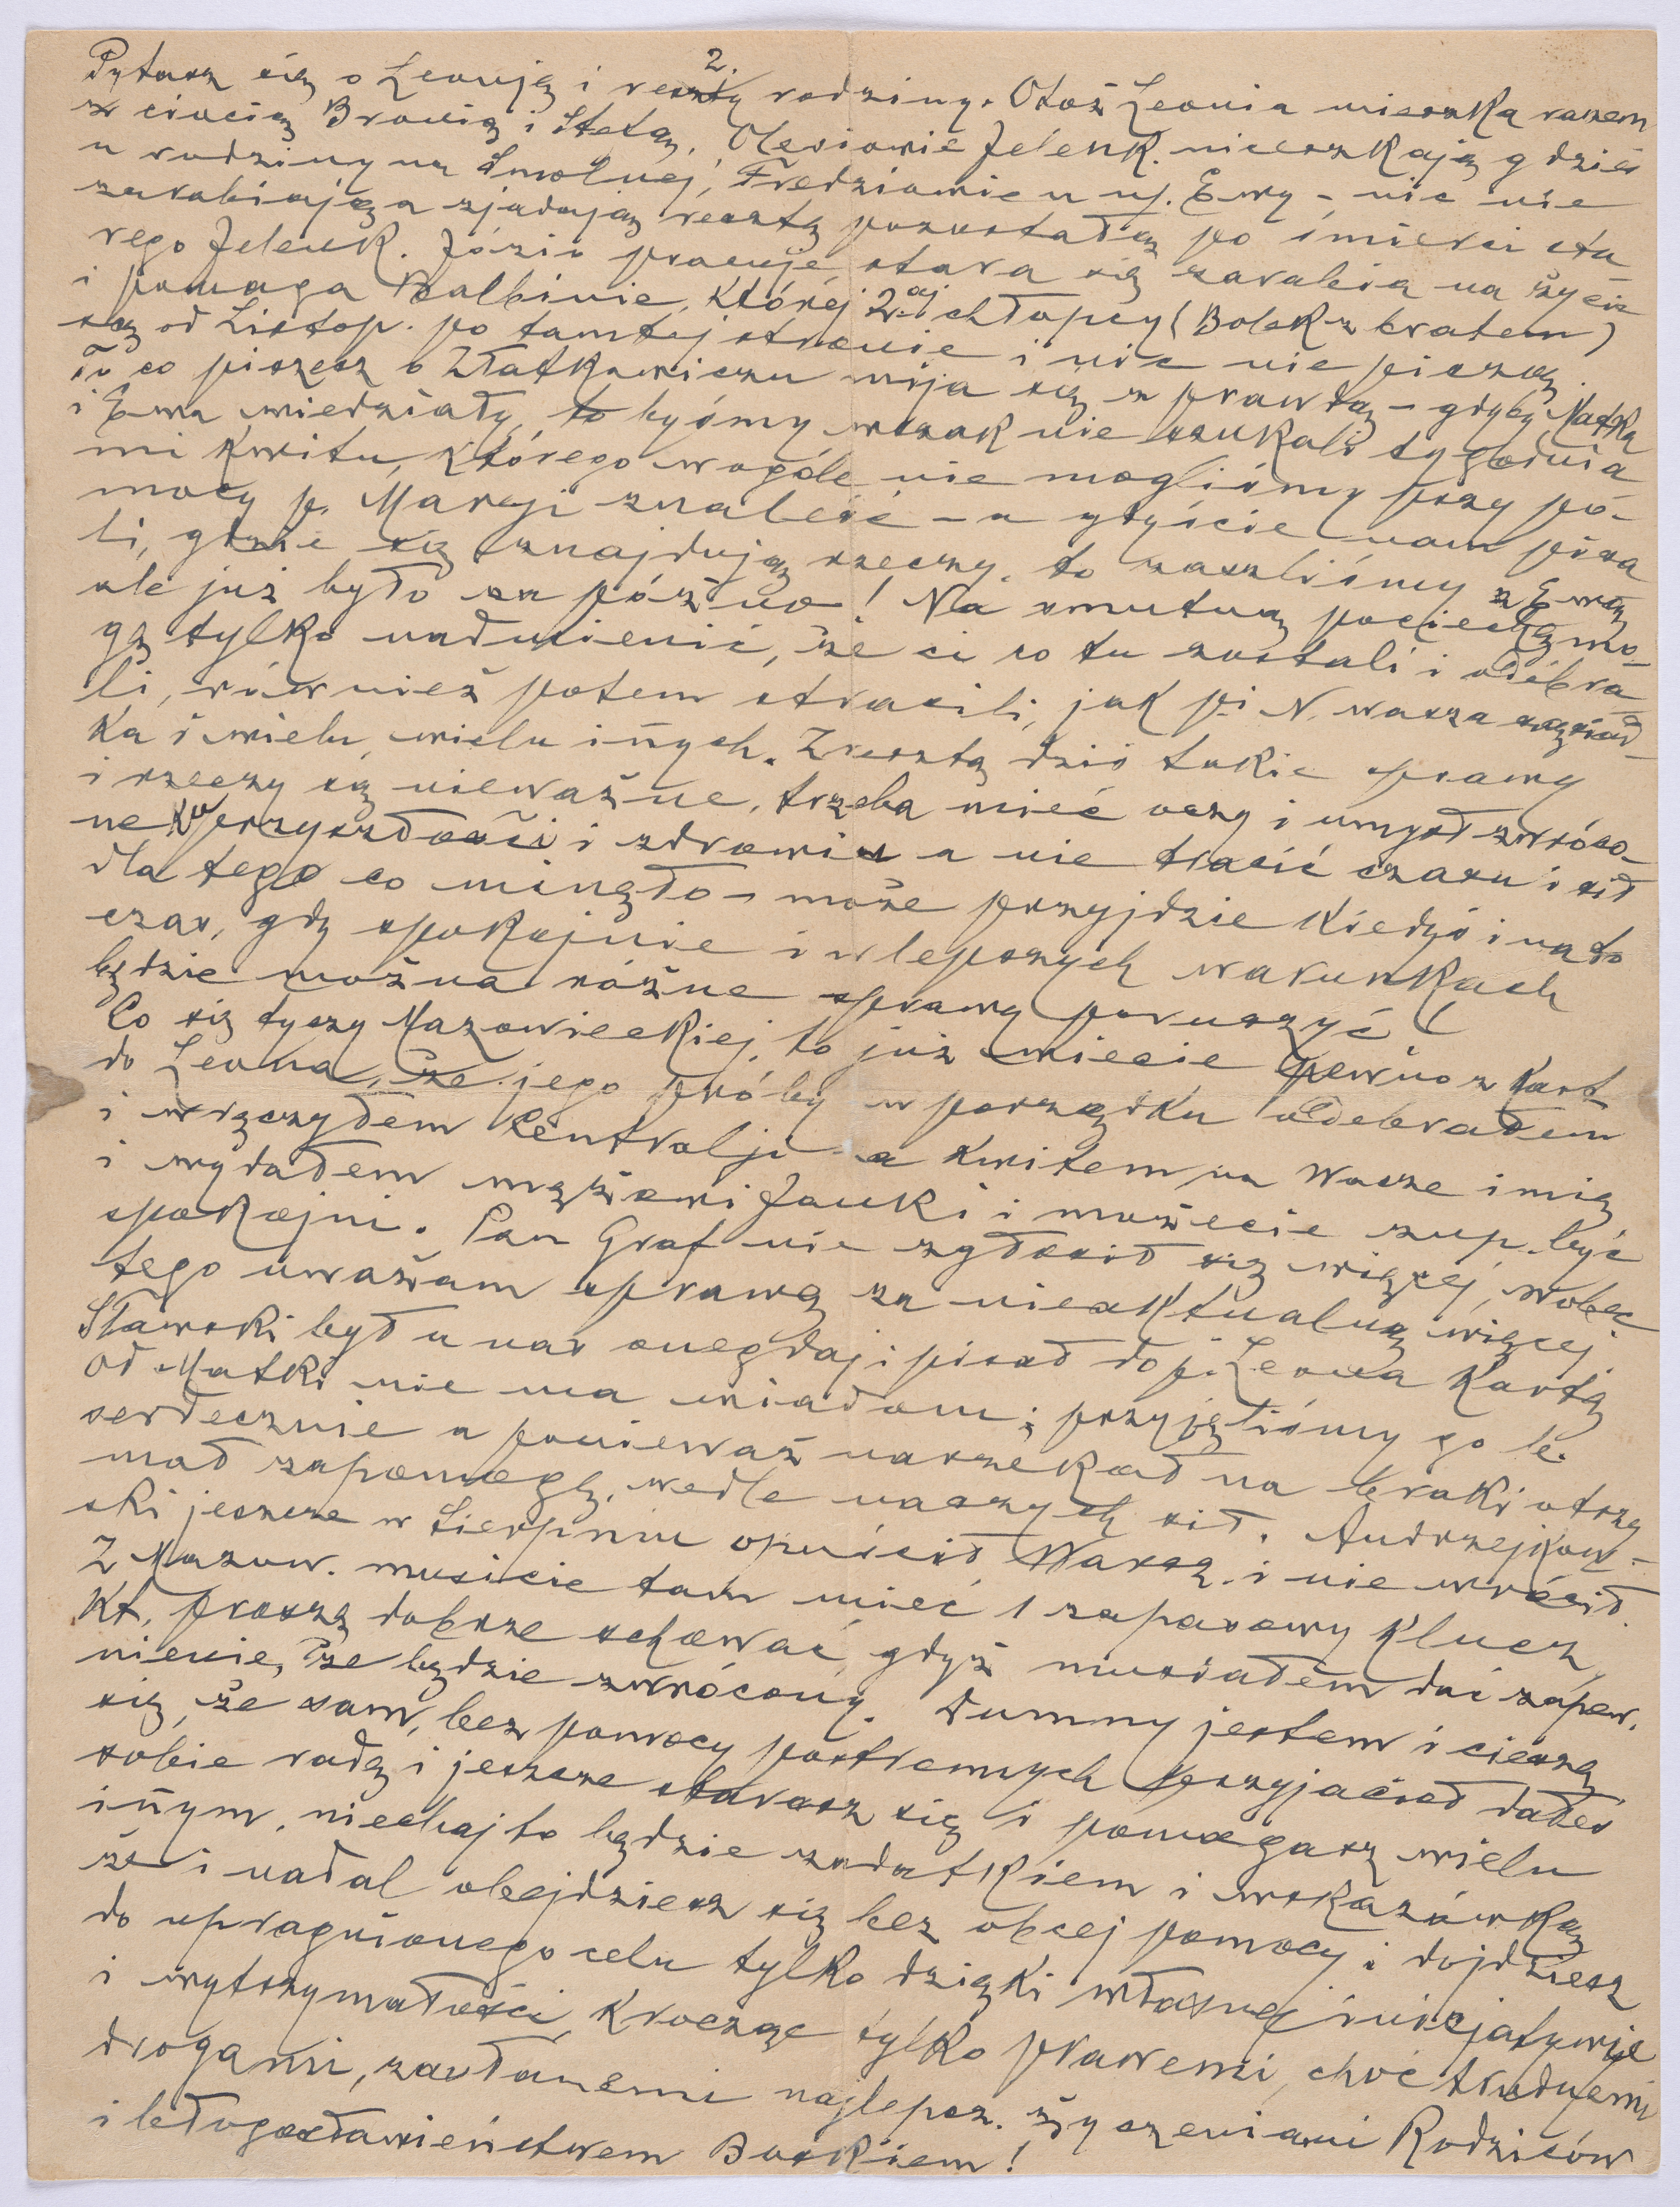 2.
Pytasz się o Leonję i resztę rodziny. Otóż Leonia mieszka razem
z ciocią Bronią i Stefą. Olesiowie Jelenk. mieszkają gdzieś
u rodziny na Smolnej, Fredziowie u uj. Ewy – nic nie
zarabiają a zjadają resztę pozostałą po śmierci sta-
rego Jelenk. Józio pracuje stara się zarabia na życie
i pomaga Balbinie, której 2-aj chłopcy (Bolek z bratem)
są od Listop. po tamtej stronie i nic nie piszą.
To co piszesz o Złatkowiczu mija się z prawdą – gdyby Matka
i Ewa wiedziały, to byśmy wszak nie szukali tygodnia
mi kwitu, którego wogóle nie mogliśmy przy po-
mocy p. Maryji znaleść – a gdyście nam pisa
li, gdzie się znajdują rzeczy, to zaszliśmy z Ewą
ale już było za późno! Na smutną pociechę mo-
gę tylko nadmienić, że ci co tu zostali i odebra-
li, również potem stracili, jak p. N. wasza sąsiad-
ka i wielu, wielu iñych. Zresztą dziś takie sprawy
i rzeczy są nieważne, trzeba mieć oczy i umysł zwróco-
ne ku przyszłości i zdrowiu a nie tracić czasu i sił
dla tego co minęło – może przyjdzie kiedyś i na to
czas, gdy spokojnie i w lepszych warunkach
będzie można różne sprawy poruszyć!
Co się tyczy Mazowieckiej, to już wiecie pewno z kart
do Leona, że jego próby w porządku odebrałem
i wręczyłem Centralji a kwitem na Wasze imię
i wydałem mężowi Janki i możecie zup. być
spokojni. Pan Graf nie zgłosił się więcej, wobec
tego uważam sprawę za nieaktualną więcej.
Sławski był u nas onegdaj i pisał do p. Leona kartę
Od Matki nie ma wiadom; przyjęliśmy go b.
serdecznie a ponieważ narzekał na braki otrzy
mał zapomogę, wedle naszych sił. Andrzejkow-
ski jeszcze w Sierpniu opuścił Warsz. i nie wrócił.
Z Mazow. musicie tam mieć 1 zapasowy klucz,
kt. proszę dobrze schować, gdyż musiałem dać zapew.
nienie, że będzie zwrócony. Dumny jestem i cieszę
się, że sam, bez pomocy postronnych przyjaciół dałeś
sobie radę i jeszcze starasz się i pomagasz wielu
iñym, niechaj to będzie zadatkiem i wskazówką
że i nadal obejdziesz się bez obcej pomocy i dojdziesz
do upragnionego celu tylko dzięki własnej inicjatywie
i wytrzymałości, krocząc tylko prawemi, choć trudnemi
drogami, zasłanemi najlepsz. życzeniami Rodziców
i błogosławieństwem Boskiem!